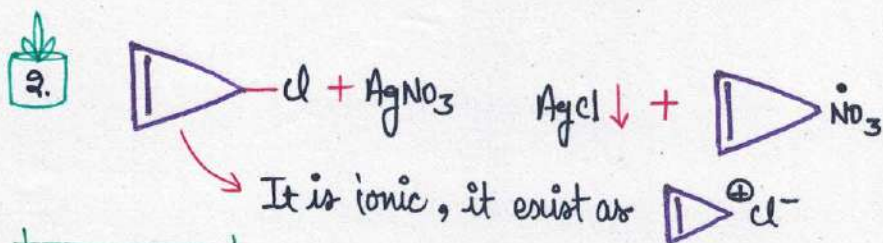 2.
Cl + AgNO₃ AgCl↓ + NO₃
It is ionic, it exist as ⊕Cl⁻